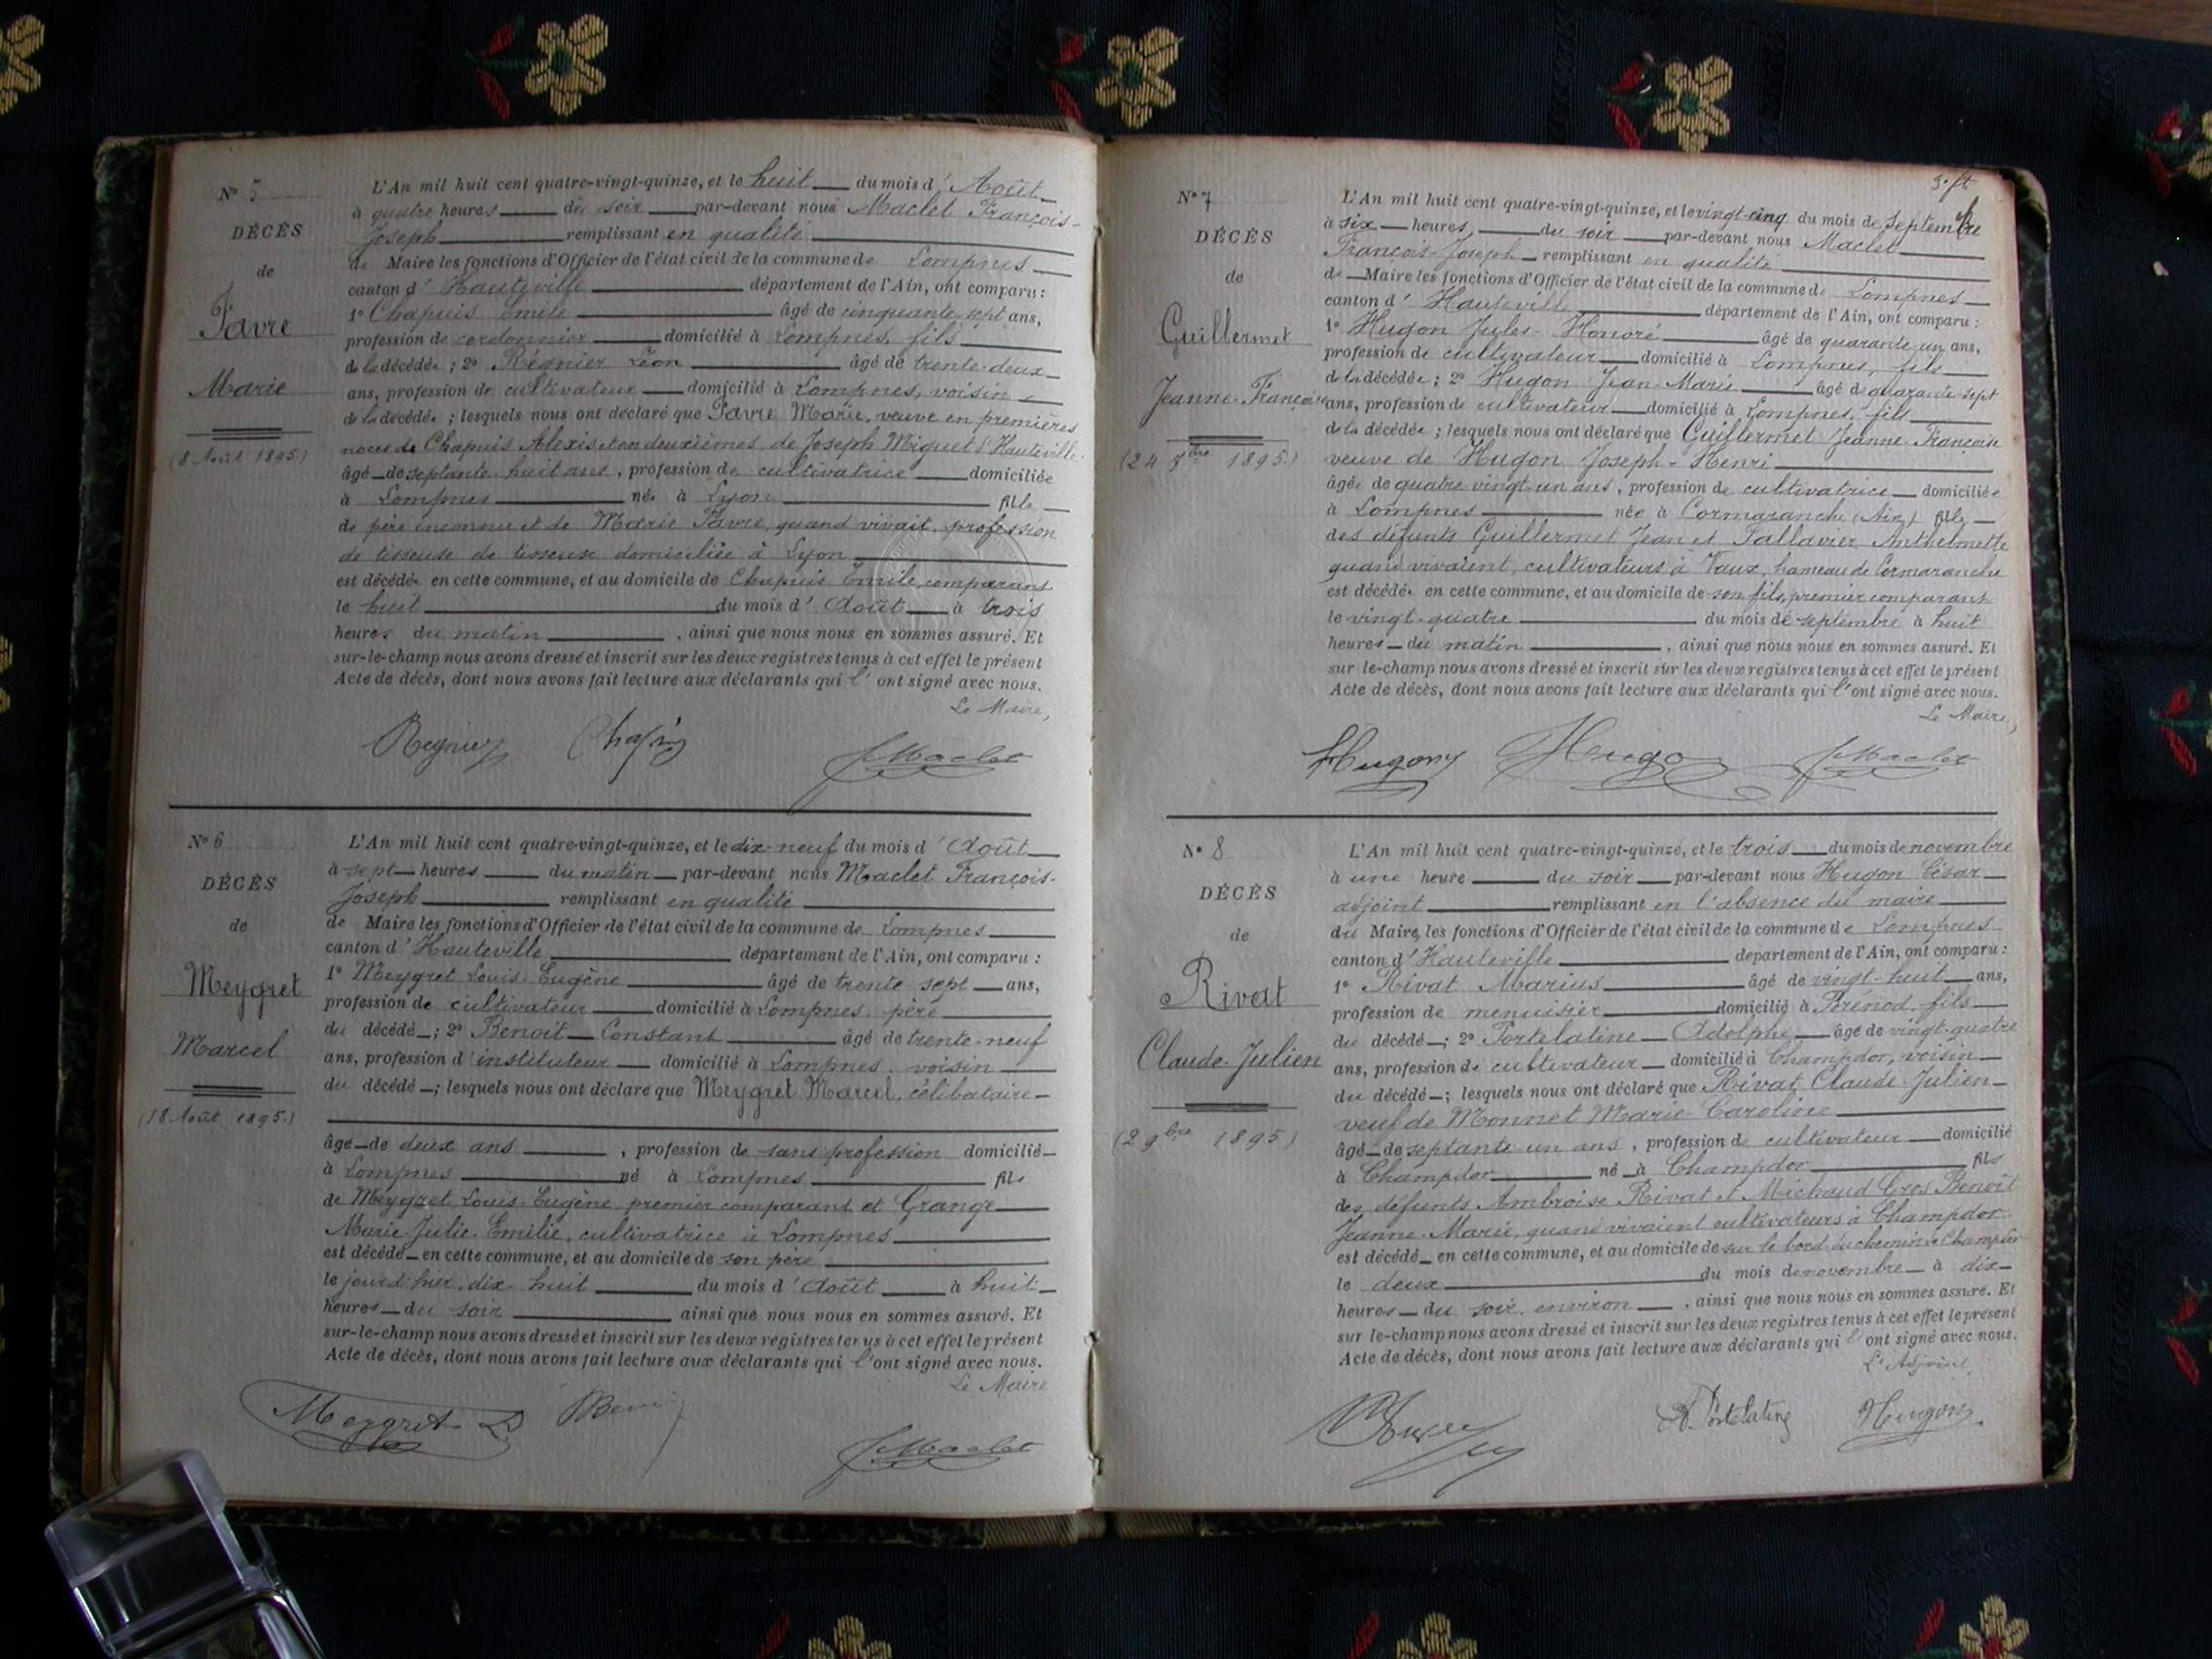 N° 5
DÉCÈS
de
Favre
Marie
(8 Août 1895)
L'An mil huit cent quatre-vingt-quinze, et le huit du mois d'Août
à quatre heures du soir par-devant nous Maclet François-
Joseph remplissant en qualité
de Maire les fonctions d'Officier de l'état civil de la commune de Lompnes
canton d'Hauteville département de l'Ain, ont comparu :
1° Chapuis Emile âgé de cinquante-sept ans,
profession de cordonnier domicilié à Lompnes, fils
de la décédée ; 2° Régnier Léon âgé de trente-deux
ans, profession de cultivateur domicilié à Lompnes, voisin
de la décédée ; lesquels nous ont déclaré que Favre Marie, veuve en premières
noces de Chapuis Alexis et en deuxièmes de Joseph Miguet d'Hauteville
âgé de septante-huit ans, profession de cultivatrice domiciliée
à Lompnes née à Lyon fille
de père inconnu et de Marie Favre, quand vivait, profession
de tisseuse de tisseuse domiciliée à Lyon
est décédée en cette commune, et au domicile de Chapuis Emile, comparant
le huit du mois d'Août à trois
heures du matin, ainsi que nous nous en sommes assuré. Et
sur-le-champ nous avons dressé et inscrit sur les deux registres tenus à cet effet le présent
Acte de décès, dont nous avons fait lecture aux déclarants qui l'ont signé avec nous.
Le Maire,
Regnier Chapuis Maclet
N° 6
DÉCÈS
de
Meygret
Marcel
(18 Août 1895)
L'An mil huit cent quatre-vingt-quinze, et le dix-neuf du mois d'Août
à sept heures du matin par-devant nous Maclet François-
Joseph remplissant en qualité
de Maire les fonctions d'Officier de l'état civil de la commune de Lompnes
canton d'Hauteville département de l'Ain, ont comparu :
1° Meygret Louis-Eugène âgé de trente-sept ans,
profession de cultivateur domicilié à Lompnes, père
du décédé ; 2° Benoit Constant âgé de trente-neuf
ans, profession d'instituteur domicilié à Lompnes, voisin
du décédé ; lesquels nous ont déclaré que Meygret Marcel, célibataire
âgé de deux ans, profession de sans profession domicilié
à Lompnes né à Lompnes fils
de Meygret Louis-Eugène premier comparant et Grange
Marie-Julie-Emilie, cultivatrice à Lompnes
est décédé en cette commune, et au domicile de son père
le jourd'hier, dix-huit du mois d'Août à huit
heures du soir ainsi que nous nous en sommes assuré. Et
sur-le-champ nous avons dressé et inscrit sur les deux registres tenus à cet effet le présent
Acte de décès, dont nous avons fait lecture aux déclarants qui l'ont signé avec nous.
Le Maire
Meygret L Maclet
N° 7
DÉCÈS
de
Guillermet
Jeanne-Françoise
(24 7bre 1895)
L'An mil huit cent quatre-vingt-quinze, et le vingt-cinq du mois de septembre
à six heures, du soir par-devant nous Maclet
François-Joseph remplissant en qualité
de Maire les fonctions d'Officier de l'état civil de la commune de Lompnes
canton d'Hauteville département de l'Ain, ont comparu :
1° Hugon Jules-Honoré âgé de quarante-un ans,
profession de cultivateur domicilié à Lompnes, fils
de la décédée ; 2° Hugon Jean-Marie âgé de quarante-sept
ans, profession de cultivateur domicilié à Lompnes, fils
de la décédée ; lesquels nous ont déclaré que Guillermet Jeanne-Françoise
veuve de Hugon Joseph-Henri
âgée de quatre-vingt-un ans, profession de cultivatrice domiciliée
à Lompnes née à Cormaranche (Ain) fille
des défunts Guillermet Jean et Tallavier Anthelmette
quand vivaient, cultivateurs à Vaux, hameau de Cormaranche
est décédée en cette commune, et au domicile de son fils, premier comparant
le vingt-quatre du mois de septembre à huit
heures du matin, ainsi que nous nous en sommes assuré. Et
sur-le-champ nous avons dressé et inscrit sur les deux registres tenus à cet effet le présent
Acte de décès, dont nous avons fait lecture aux déclarants qui l'ont signé avec nous.
Le Maire,
Hugon Hugon Maclet
N° 8
DÉCÈS
de
Rivat
Claude-Julien
(2 9bre 1895)
L'An mil huit cent quatre-vingt-quinze, et le trois du mois de novembre
à une heure du soir par-devant nous Hugon César
adjoint remplissant en l'absence du maire
du Maire, les fonctions d'Officier de l'état civil de la commune de Lompnes
canton d'Hauteville département de l'Ain, ont comparu :
1° Rivat Marius âgé de vingt-huit ans,
profession de menuisier domicilié à Brénod, fils
du décédé ; 2° Portelatine Adolphe âgé de vingt-quatre
ans, profession de cultivateur domicilié à Champdor, voisin
du décédé ; lesquels nous ont déclaré que Rivat Claude-Julien
veuf de Monnet Marie-Caroline
âgé de septante-un ans, profession de cultivateur domicilié
à Champdor né à Champdor fils
des défunts Ambroise Rivat et Michaud Gros Benoît
Jeanne-Marie, quand vivaient cultivateurs à Champdor
est décédé en cette commune, et au domicile de sur le bord du chemin de Champdor
le deux du mois de novembre à dix
heures du soir environ, ainsi que nous nous en sommes assuré. Et
sur le-champ nous avons dressé et inscrit sur les deux registres tenus à cet effet le présent
Acte de décès, dont nous avons fait lecture aux déclarants qui l'ont signé avec nous.
L'Adjoint
A. Portelatine Hugon